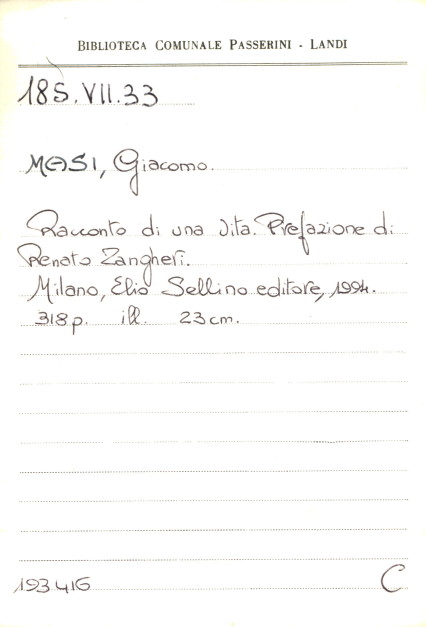 BIBLIOTECA COMUNALE PASSERINI - LANDI
18S.VII.33
MASI, Giacomo.
Racconto di una vita. Prefazione di
Renato Zangheri.
Milano, Elio Sellino editore, 1994.
318 p. ill. 23 cm.
193416
C